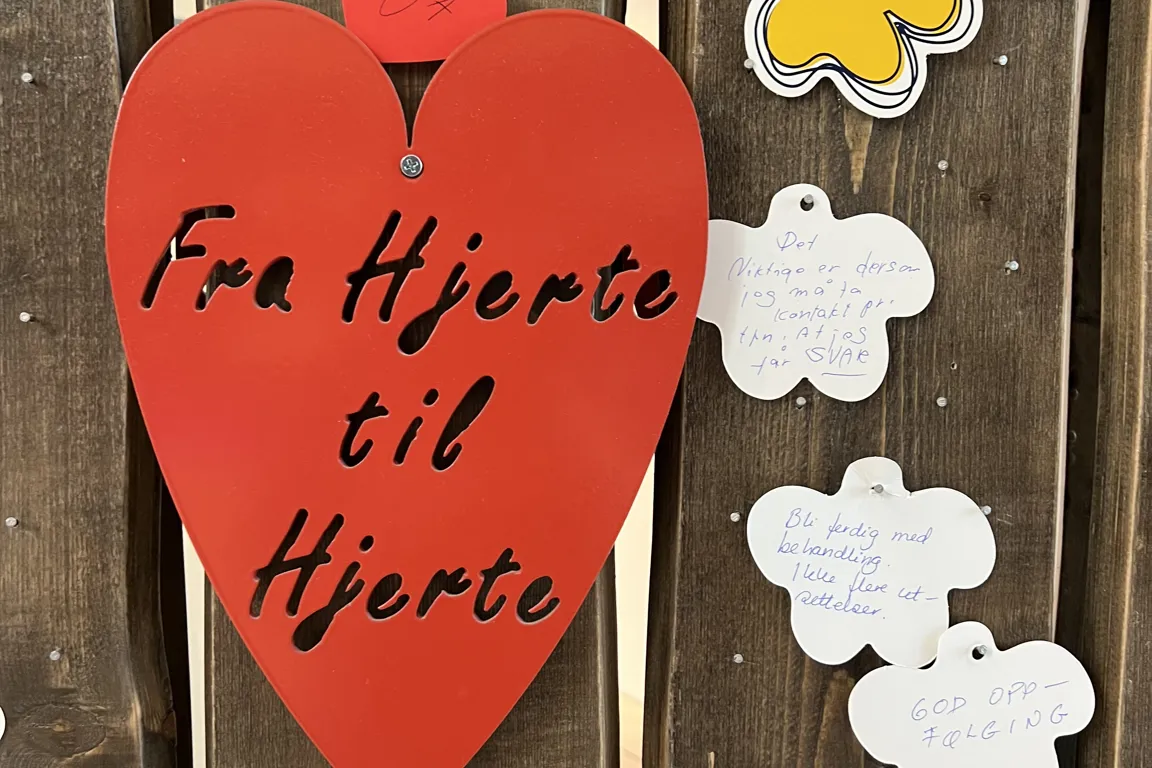 Fra Hjerte
til
Hjerte
Det
Viktige er dersom
jeg må ta
kontakt pr.
tfn. At jeg
får SVAR
Bli ferdig med
behandling.
Ikke flere ut-
settelser.
GOD OPP-
FØLGING